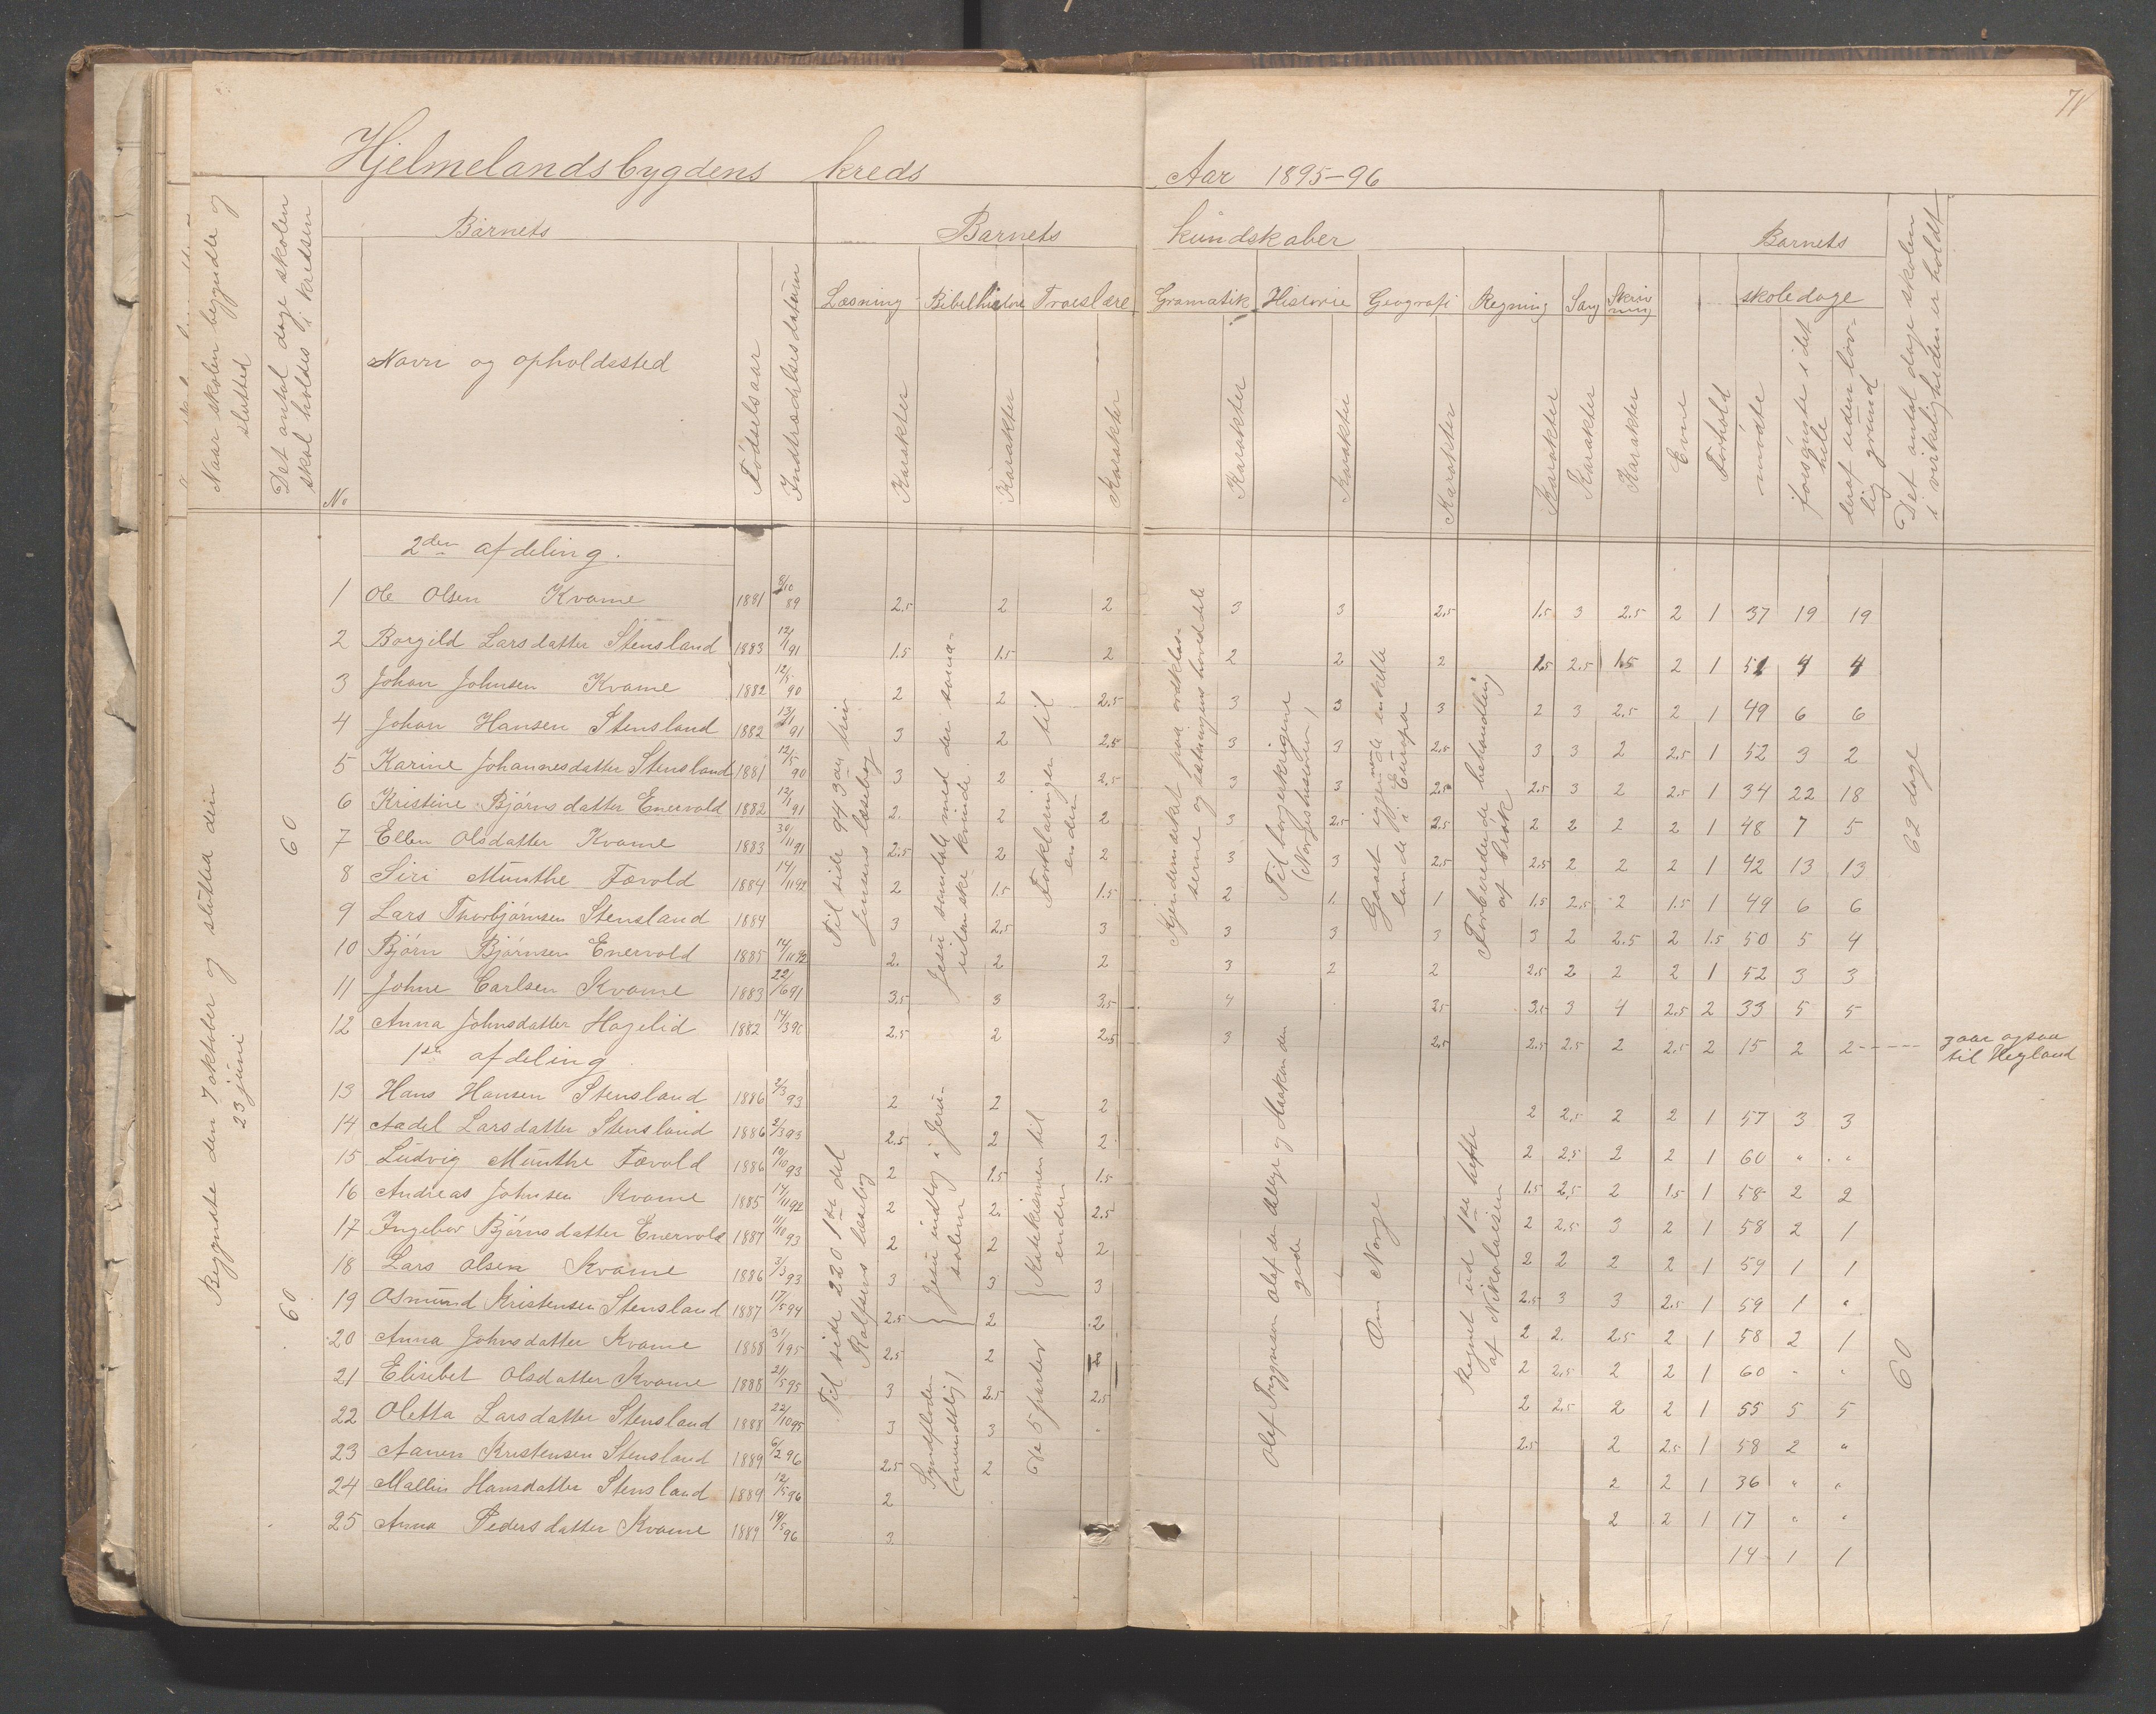 78
Hjelmelandsbygdens kreds Aar 1895-96
Naar skolen begyndte og slutted
Det antal dage skolen skal holdes i kredsen
No
Barnets
Navn og opholdssted
Fødselsaar
Indtrædelsesdatum
Barnets kundskaber
Læsning Bibelhistorie Troeslære Gramatik Historie Geografi Regning Sang Skrivning
Karakter Karakter Karakter Karakter Karakter Karakter Karakter Karakter Karakter
Evne
Forhold
Barnets skoledage
mødte
forsømte i det hele
deraf uden lovlig grund
Det antal dage skolen i virkeligheden er holdt
Begyndte den 7 oktober og sluttea den 23 juni
60
60
2den afdeling.
1 Ole Olsen Kvame 1881 8/10 89 2.5 2 2 3 3 2.5 1.5 3 2.5 2 1 37 19 19
2 Borgild Larsdatter Stensland 1883 12/1 91 1.5 1.5 2 2 2 2 1.5 2.5 1.5 2 1 51 4 4
3 Johan Johnsen Kvame 1882 12/5 90 2 2 2.5 3 3 3 2 3 2.5 2 1 49 6 6
4 Johan Hansen Stensland 1882 13/1 91 3 2 2.5 3 3 2.5 3 3 2 2.5 1 52 3 2
5 Karine Johannesdatter Stensland 1881 12/5 90 3 2 2.5 3 3 2.5 2.5 3 2 2.5 1 34 22 18
6 Kristine Bjørnsdatter Enervold 1882 12/1 91 2. 2 2 3 2.5 2.5 2 2 2 2 1 48 7 5
7 Ellen Olsdatter Kvame 1883 30/11 91 2.5 2 2 3 3 2.5 2.5 2 2 2 1 42 13 13
8 Siri Munthe Fævold 1884 14/11 92 2 1.5 1.5 2 1. 1 1.5 2.5 2 1.5 1 49 6 6
9 Lars Thorbjørnsen Stensland 1884 3 2.5 3 3 3 3 3 2 2.5 2 1.5 50 5 4
10 Bjørn Bjørnsen Enervold 1885 14/11 92 2. 2 2 3 2 2 2.5 2 2 2 1 52 3 3
11 Johne Carlsen Kvame 1883 22/6 91 3.5 3 3.5 4 2.5 3.5 3 4 2.5 2 33 5 5
12 Anna Johnsdatter Hagelid 1882 14/3 90 2.5 2 2.5 3 2.5 2.5 2.5 2 2.5 2 15 2 2 gaar ogsaa til Hegland
Til side 94 3die trin Jensens læsebog
Jesu samtale med den samaritanske kvinde.
Forklaringer til enden
Kjendemærket paa ordklasserne og sætningens hoveddele
Til borgerkrigene (Norgeshistorien)
Gaaet igjennem de enkelte lande i Europa
Forberedende behandling af brøk
62 dage
1ste afdeling
13 Hans Hansen Stensland 1886 2/3 93 2 2 2 2 2.5 2 2 1 57 3 3
14 Aadel Larsdatter Stensland 1886 2/3 93 2.5 2 2 2 2.5 2 2 1 60 " "
15 Ludvig Munthe Fævold 1886 10/10 93 2 1.5 1.5 1.5 2.5 2 1.5 1 58 2 2
16 Andreas Johnsen Kvame 1885 14/11 92 2 2. 2.5 2 2.5 3 2 1 58 2 1
17 Ingebor Bjørnsdatter Enervold 1887 11/10 93 2 2 2 2 2 2 2 1 59 1 1
18 Lars Olsen Kvame 1886 3/3 93 3 3 3 2.5 3 3 2.5 1 59 1 "
19 Osmund Kristensen Stensland 1887 17/5 94 2.5 2 2 2 2. 2.5 2 1 58 2 1
20 Anna Johnsdatter Kvame 1888 31/1 95 2.5 2 2 2 2.5 2 2 1 60 " "
21 Elisebet Olsdatter Kvame 1888 21/5 95 3 2.5 2.5 2 2.5 2 2 1 55 5 5
22 Oletta Larsdatter Stensland 1888 22/10 95 3 3 - 2.5 2 2.5 1 58 2 "
23 Aanen Kristensen Stensland 1889 6/2 96 2.5 2 2 2 1 36 " "
24 Mallin Hansdatter Stensland 1889 12/5 96 2 2 2 1 17 " "
25 Anna Pedersdatter Kvame 1889 19/5 96 3 14 1 1
Til side 220 1ste del Rolfsens læsebog
Jesu indtog i Jerusalem
Syndfloden (mundtlig)
Katekismen til enden
6te 5 parter
Olaf Trygvesen Olaf den hellige og Haakon den gode
Om Norge
Regnet ud 1ste hefte af Nikolaisen
60